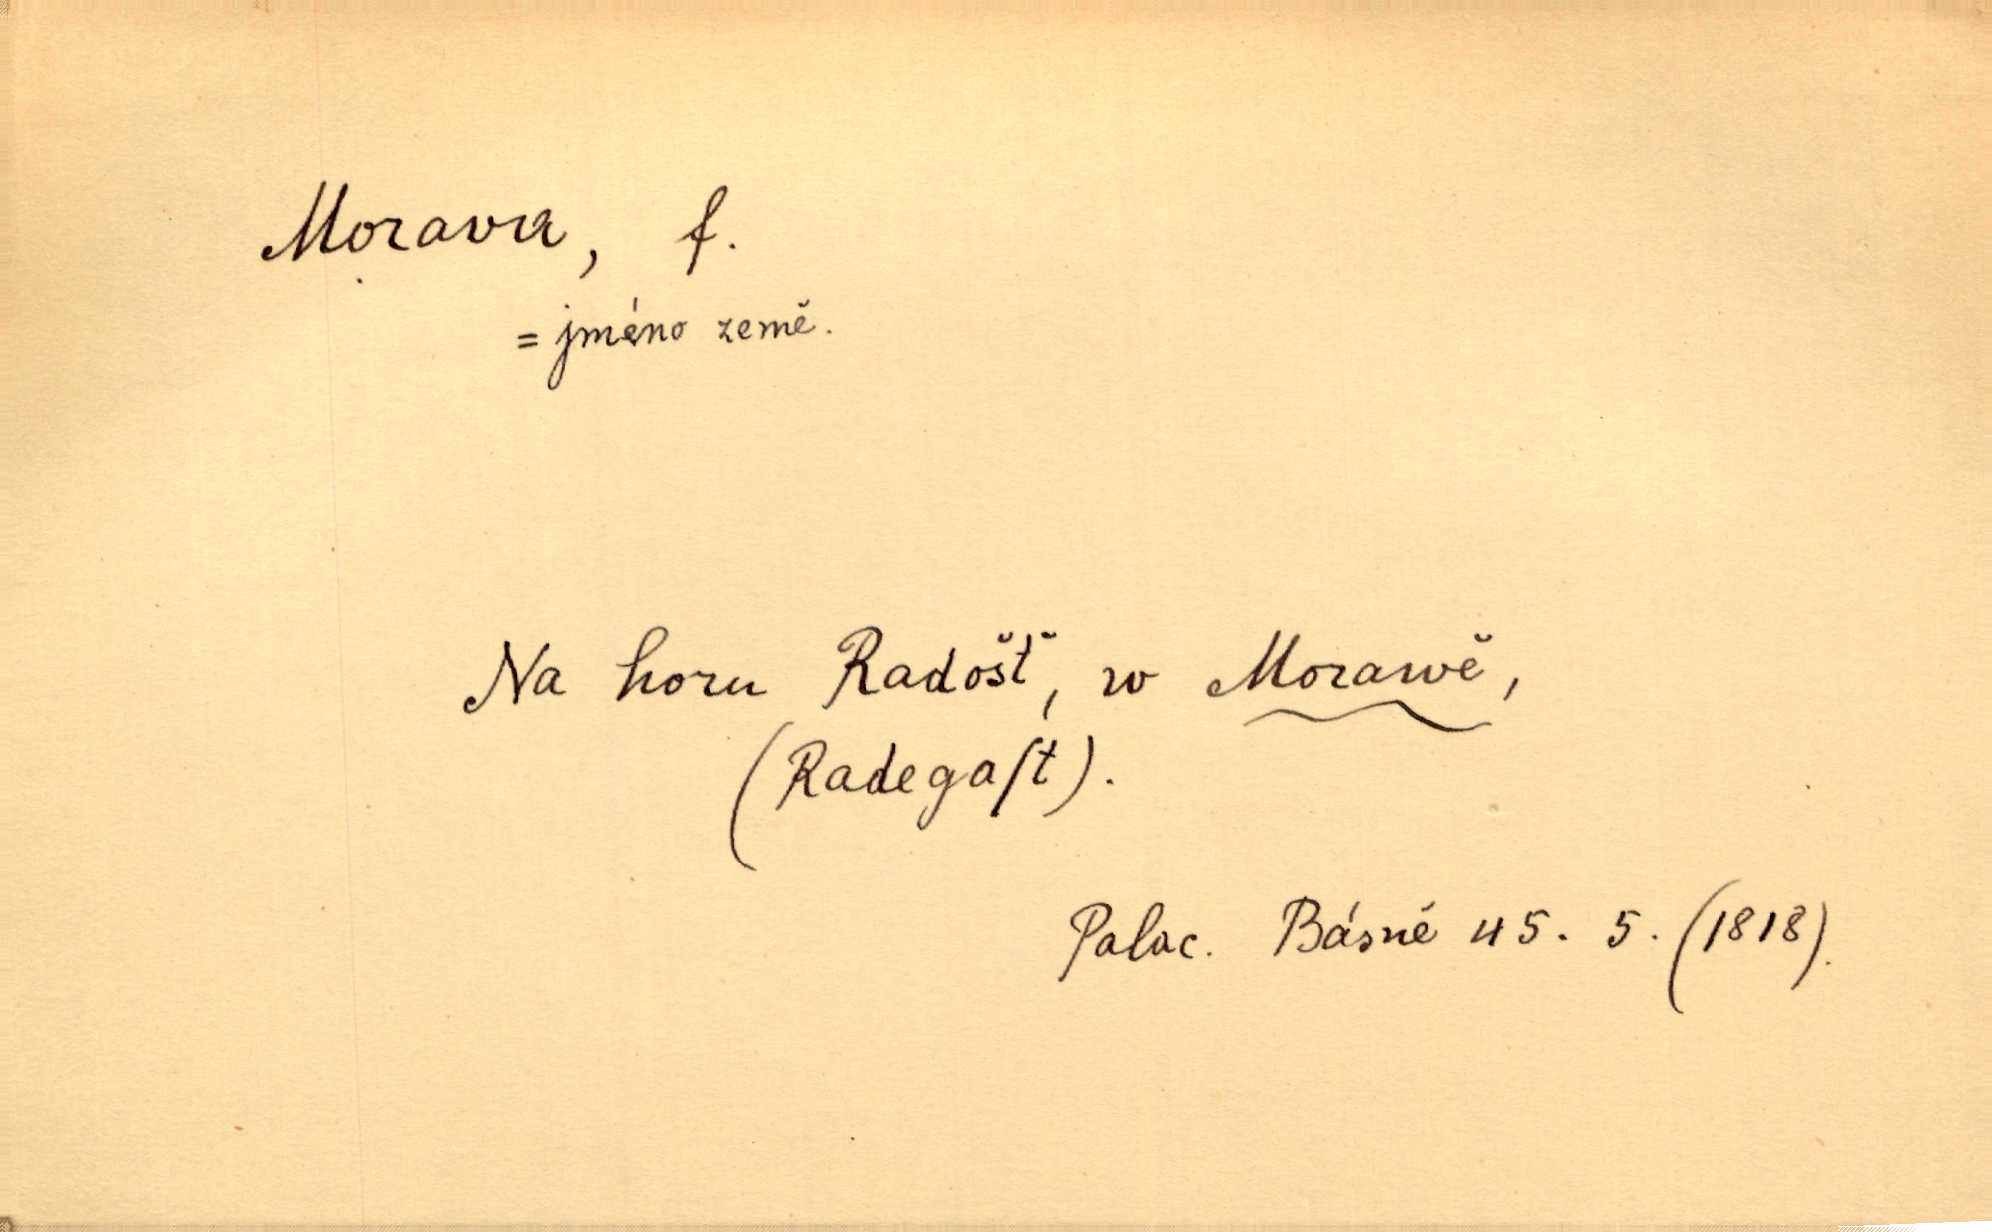 Morava, f.
= jméno země.
Na horu Radošť, w Morawě,
(Radegaſt).
Palac. Básně 45. 5. (1818).